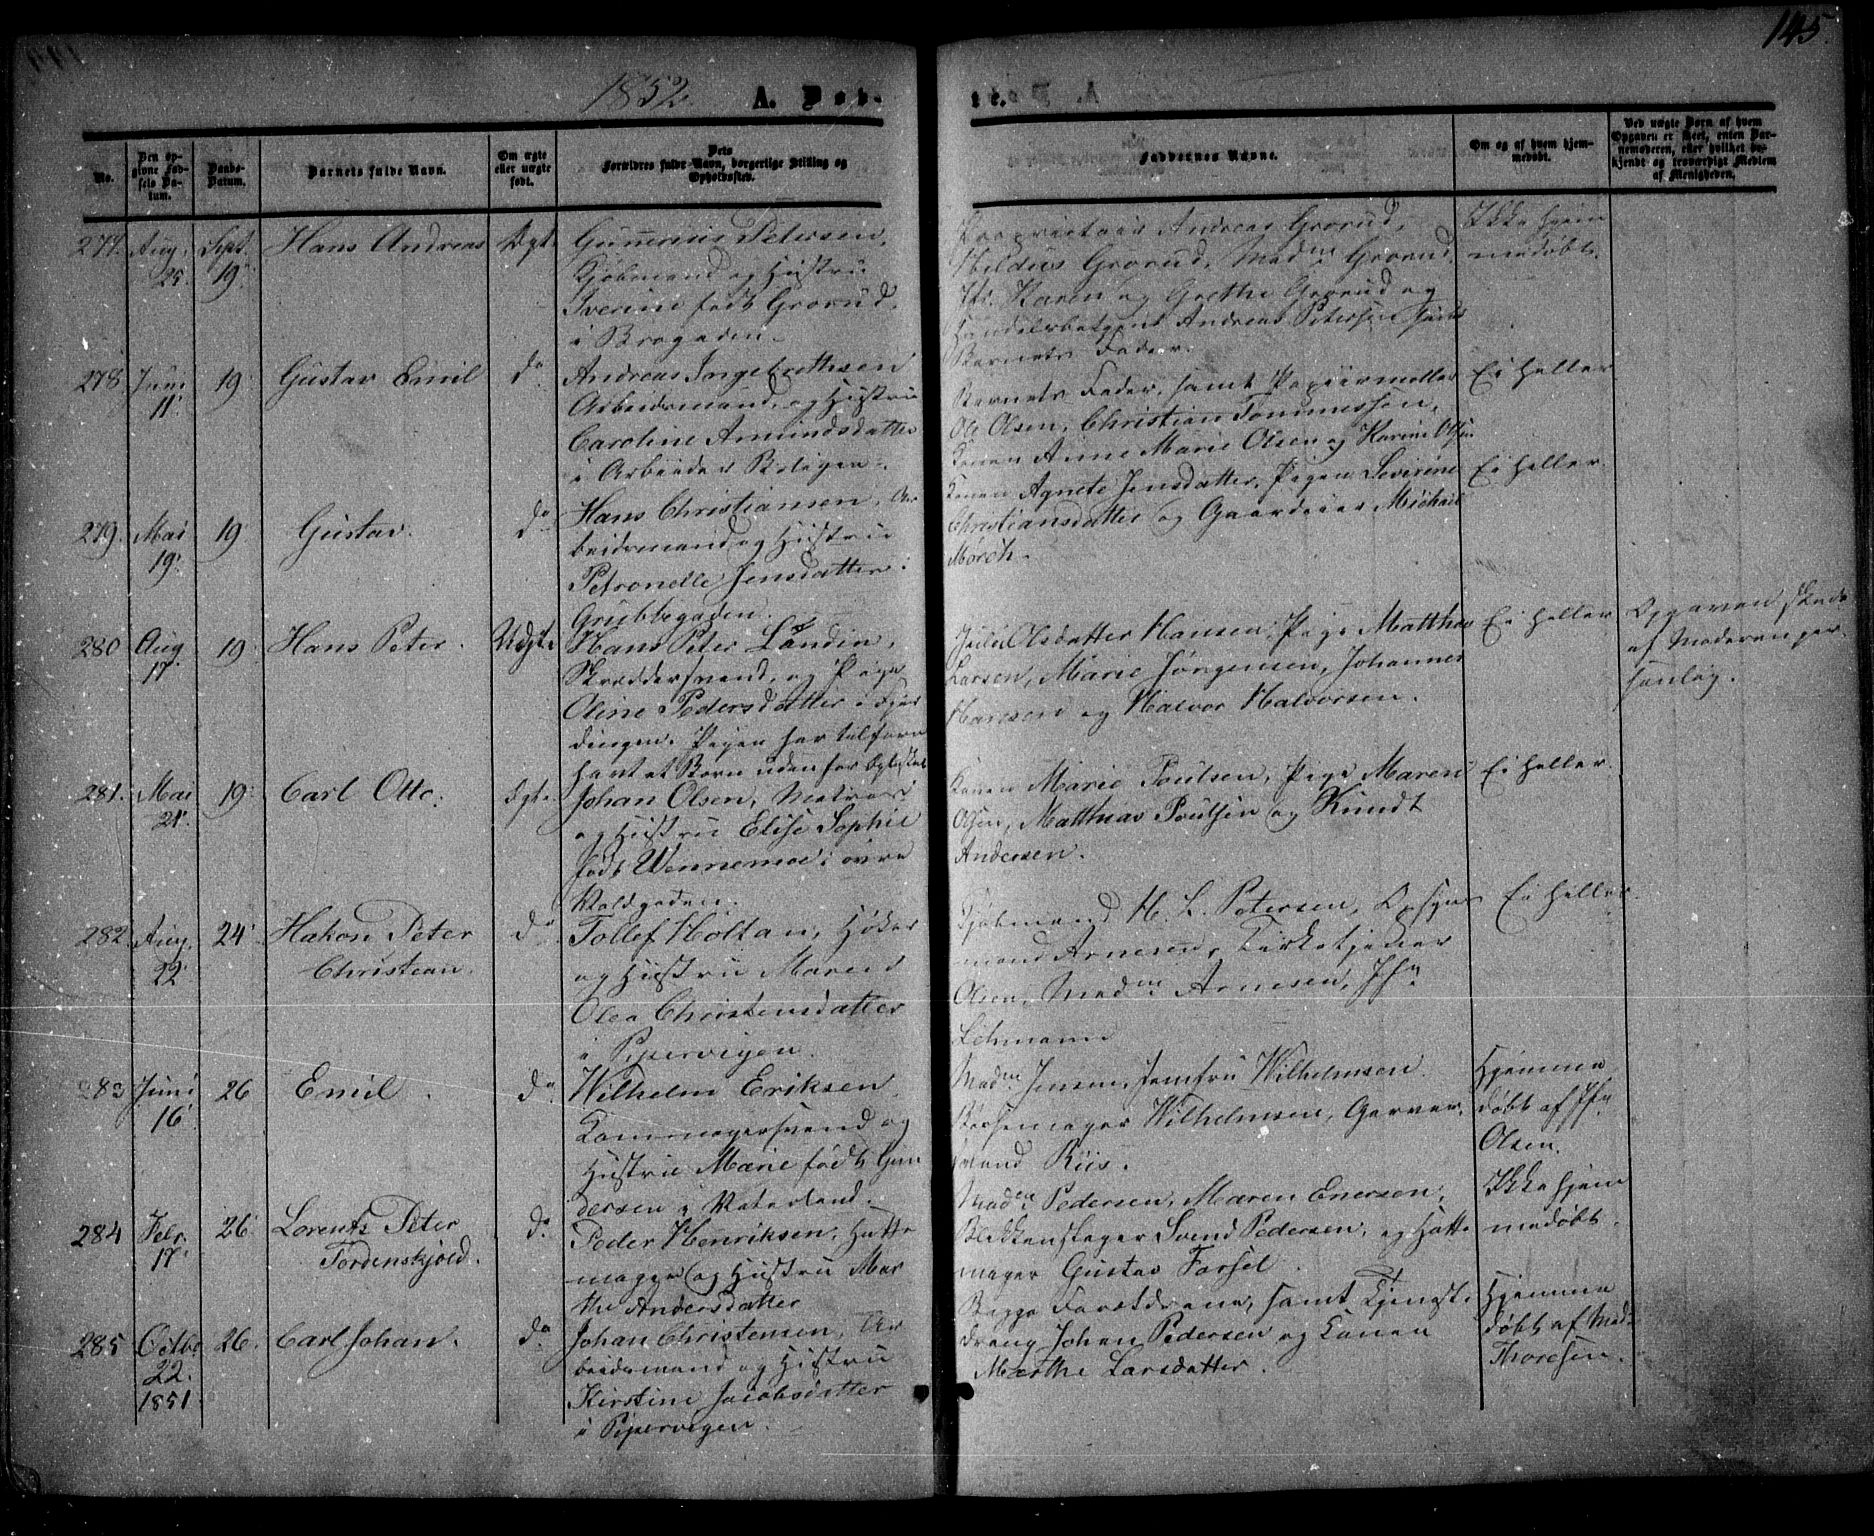 145.
1852. A. Døb-
te.
No.
Den opgivne Fødsels Datum.
Daabs-Datum.
Barnets fulde Navn.
Om ægte eller uægte født.
Dets Forældres fulde Navn, borgerlige Stilling og Opholdssted.
Faddernes Navne.
Om og af hvem hjemmedøbt.
Ved uægte Børn af hvem Opgaven er skeet, enten Barnemoderen, eller hvilket bekjendt og troværdigt Medlem af Menigheden.
277. Aug. 25. Sept. 19. Hans Andreas Ægt.
Petersen,
Kjøbmand og Hustru
Iverine født Grorud
i Brogaden.
Proprietair Andreas Grorud,
Hildus Grorud, Madm Grorud,
Jfr. Karen og Grethe Grorud og
Handelsbetjent Andreas Petersen samt
Barnets Fader.
Ikke hjem
medøbt.
278. Juni 11. 19. Gustav Emil do
Andreas Ingebrethsen
Arbeidsmand, og Hustru
Caroline Amundsdatter
i Arbeider Boligen.
Barnets Fader, samt Papiirmoller
Ole Olsen, Christian Tommessen,
Konen Anne Marie Olsen og Karine Olsen
Ei heller
279. Mai 19. 19. Gustav. do
Hans Christiansen, Ar
beidsmand og Hustru
Petronelle Jensdatter i
Grubbegaden.
Konen Agnete Jensdatter, Pigen Severine
Christiansdatter og Gaardeier Michael
Mørch.
Ei heller.
280 Aug 17. 19. Hans Peter. Uægt.
Hans Peter Lundin,
Skræddersvend, og Pige
Oline Pedersdatter i Fjer
dingen. Pigen har tilforn
havt et Barn udenfor Ægteskab
Olsdatter Hansen, Pige Matthea
Larsen, Marie Jørgensen, Johannes
Hansen og Halvor Halvorsen.
Ei heller
Opgaven skede
af Moderen per-
sonlig.
281. Mai 21. 19. Carl Otto. Ægt.
Johan Olsen, Matros
og Hustru Elise Sophie
født Wennemoe i øvre
Voldgaden.
Konen Marie Poulsen, Pige Maren
Olsen, Matthias Poulsen og Knudt
Andersen.
Ei heller.
282. Aug. 22. 24. Hakon Peter do
Christian.
Tollef Holtan, Høker
og Hustru Maren
Olea Christensdatter
i Pipervigen.
Kjøbmand H. L. Petersen, Opsyns
mand Arnesen, Kirketjener
Olsen, Madm Arnesen, Jfr
Lehmann
Ei heller.
283 Juni 16. 26 Emil. do
Wilhelm Eriksen
svend og
Hustru Marie født Gun
dersen i Vaterland.
Madm Jensen, Jomfru Wilhelmsen.
Børsemager Wilhelmsen, Garver-
svend Riis.
Hjemme
døbt af Jfr
Olsen.
284 Febr. 17. 26. Lorents Peter do
Tordenskjold.
Peder Henriksen, Hatte
mager og Hustru Mar
the Andersdatter
Madm Pedersen, Maren Enersen,
Blikkenslager Svend Pedersen, og Hatte
mager Gustav Forsel.
Ikke hjem
medøbt.
285 Octbr 22. 1851. 26. Carl Johan. do
Johan Christensen, Ar
beidsmand og Hustru
Kirstine Jacobsdatter
i Pipervigen.
Begge Forældrene, samt Tjeneste
dreng Johan Pedersen og Konen
Marthe Larsdatter.
Hjemme
døbt af Mad
Thoresen.